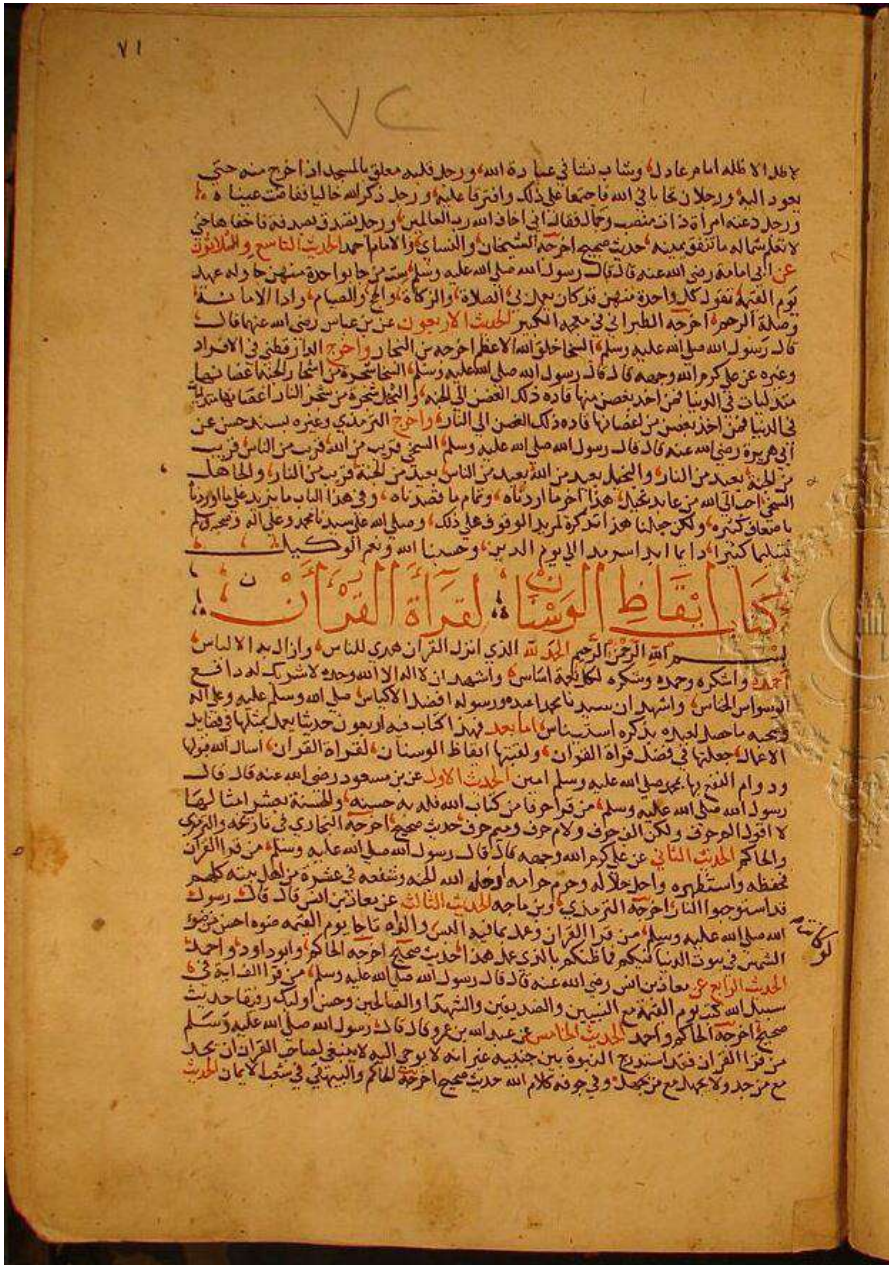 ٧١
٧٢
لا ظل الا ظله امام عادل وشاب نشا في عبادة الله ورجل قلبه معلق بالمسجد اذا خرج منه حتى
يعود اليه ورجلان تحابا في الله فاجتمعا على ذلك وافترقا عليه ورجل ذكر الله خاليا ففاضت عيناه
ورجل دعته امراة ذات منصب وجمال فقال اني اخاف الله رب العالمين ورجل تصدق بصدقة فاخفاها حتى
لا تعلم شماله ما تنفق يمينه حديث صحيح اخرجه الشيخان والنساي والامام احمد الحديث التاسع والثلاثون
عن ابي امامة رضي الله عنه قال قال رسول الله صلى الله عليه وسلم ست من جا بواحدة منهن جا وله عهد
يوم القيمة تقول كل واحدة منهن قد كان يعمل بي الصلاة والزكاة والحج والصيام وادا الامانة
وصلة الرحم اخرجه الطبراني في معجمه الكبير الحديث الاربعون عن بن عباس رضي الله عنهما قال
قال رسول الله صلى الله عليه وسلم السخا خلق الله الاعظم اخرجه بن النجار واخرج الدارقطني في الافراد
وغيره عن علي كرم الله وجهه قال قال رسول الله صلى الله عليه وسلم السخا شجرة من اشجار الجنة اغصانها
متدليات في الدنيا فمن اخذ بغصن منها قاده ذلك الغصن الى الجنة والبخل شجرة من شجر النار اغصانها متدليات
في الدنيا فمن اخذ بغصن من اغصانها قاده ذلك الغصن الى النار واخرج الترمذي وغيره بسند حسن عن
ابي هريرة رضي الله عنه قال قال رسول الله صلى الله عليه وسلم السخي قريب من الله قريب من الناس قريب
من الجنة بعيد من النار والبخيل بعيد من الله بعيد من الناس بعيد من الجنة قريب من النار والجاهل
السخي احب الى الله من عابد بخيل هذا اخر ما اردناه وتمام ما قصدناه وفي هذا الباب ما يزيد على ما اوردنا
باضعاف كثيرة ولكن جعلنا هذا تذكرة لمريد الوقوف على ذلك وصلى الله على سيدنا محمد وعلى اله وصحبه وسلم
تسليما كثيرا دايما ابدا سرمدا الى يوم الدين وحسبنا الله ونعم الوكيل
كتاب ايقاظ الوسنان لقرآءة القرآن
بسم الله الرحمن الرحيم الحمد لله الذي انزل القران هدى للناس وازال به الالباس
احمده واشكره وحمده وشكره لكل نجاة اساس واشهد ان لا اله الا الله وحده لا شريك له دافع
الوسواس الخناس واشهد ان سيدنا محمدا عبده ورسوله افضل الاكياس صلى الله وسلم عليه وعلى اله
وصحبه ما حصل لعبده بذكره استيناس اما بعد فهذا كتاب فيه اربعون حديثا يعمل بمثلها في فضايل
الاعمال جعلتها في فضل قراة القران ولقبتها ايقاظ الوسنان لقراة القران اسال الله قبولها
ودوام النفع بها بمحمد صلى الله عليه وسلم امين الحديث الاول عن بن مسعود رضي الله عنه قال قال
رسول الله صلى الله عليه وسلم من قرا حرفا من كتاب الله فله به حسنة والحسنة بعشر امثالها
لا اقول الم حرف ولكن الف حرف ولام حرف وميم حرف حديث صحيح اخرجه البخاري في تاريخه والترمذي
والحاكم الحديث الثاني عن علي كرم الله وجهه قال قال رسول الله صلى الله عليه وسلم من قرا القران
فحفظه واستظهره واحل حلاله وحرم حرامه ادخله الله الجنة وشفعه في عشرة من اهل بيته كلهم
قد استوجبوا النار اخرجه الترمذي وبن ماجه الحديث الثالث عن معاذ بن انس قال قال رسول
الله صلى الله عليه وسلم من قرا القران وعمل بما فيه البس والداه تاجا يوم القيمة ضوه احسن من ضو
الشمس في بيوت الدنيا فيكم فما ظنكم بالذي عمل هذا حديث صحيح اخرجه الحاكم وابو داود واحمد
لو كانت
الحديث الرابع عن معاذ بن انس رضي الله عنه قال قال رسول الله صلى الله عليه وسلم من قرا الف اية في
سبيل الله كتب يوم القيمة مع النبيين والصديقين والشهدا والصالحين وحسن اوليك رفيقا حديث
صحيح اخرجه الحاكم واحمد الحديث الخامس عن عبد الله بن عمرو قال قال رسول الله صلى الله عليه وسلم
من قرا القران فقد استدرج النبوة بين جنبيه غير انه لا يوحى اليه لا ينبغي لصاحب القران ان يجد
مع من جد ولا يجهل مع من يجهل وفي جوفه كلام الله حديث صحيح اخرجه الحاكم والبيهقي في شعب الايمان الحديث